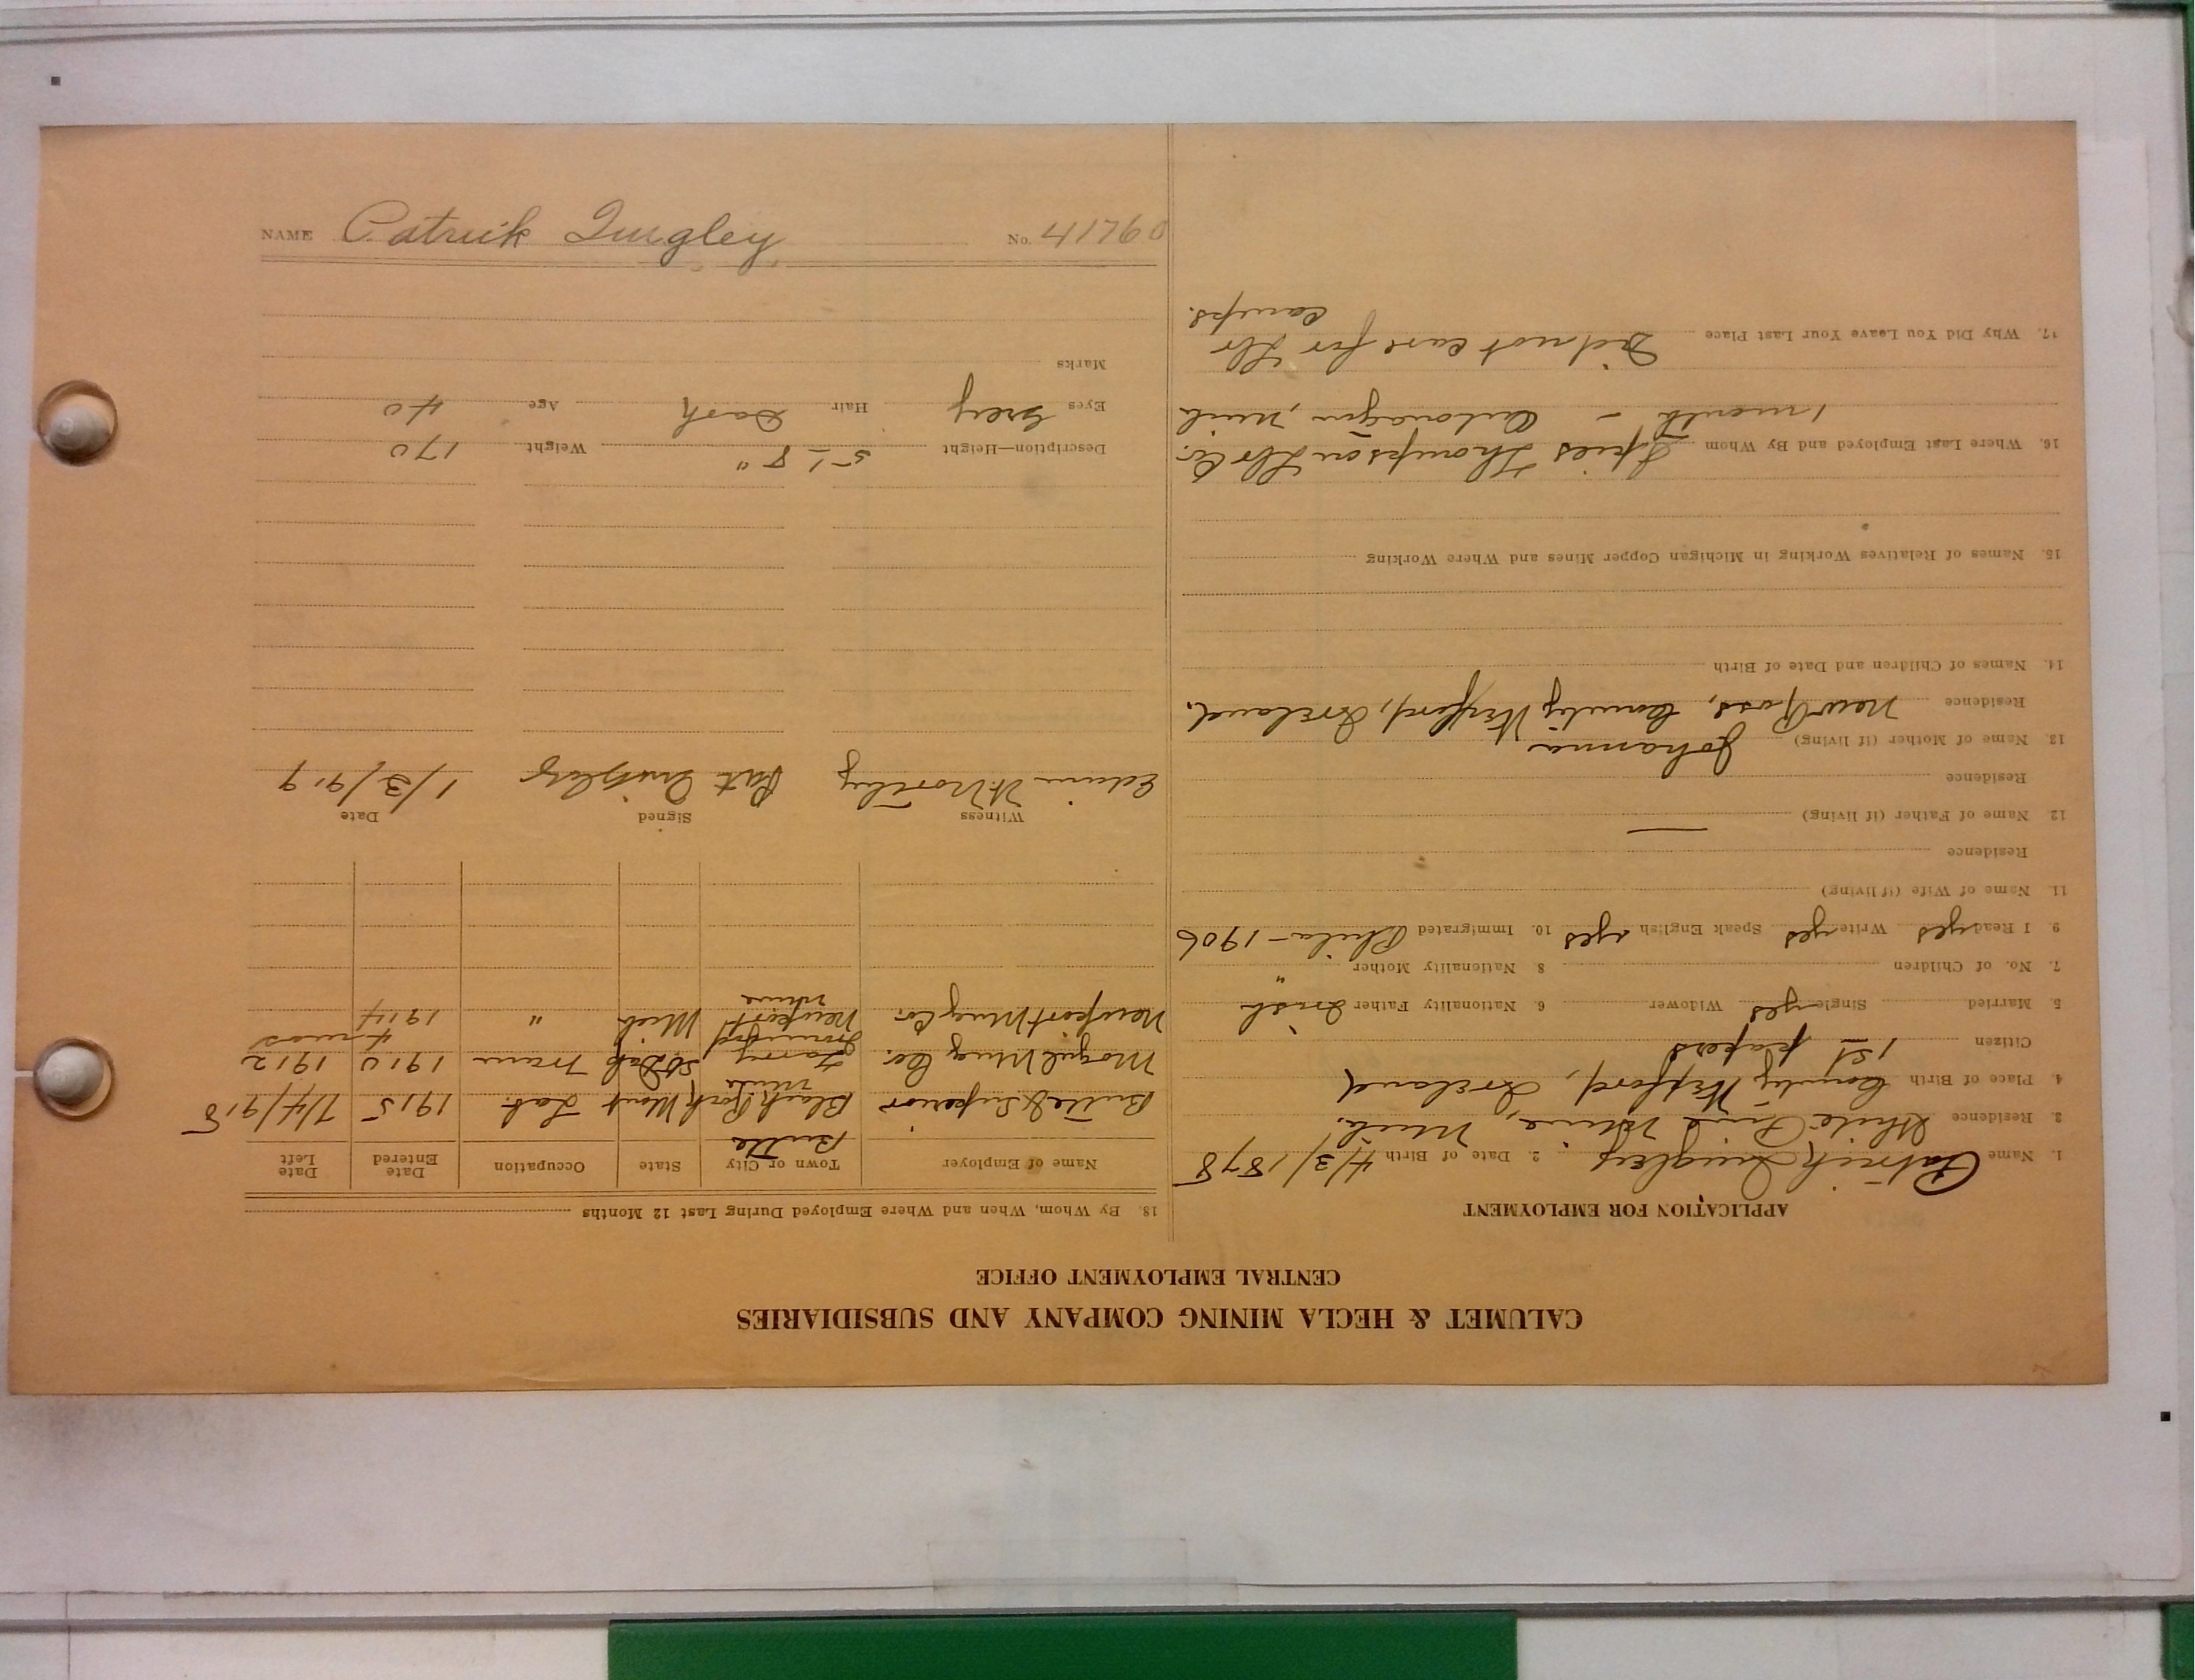 CALUMET & HECLA MINING COMPANY AND SUBSIDIARIES
CENTRAL EMPLOYMENT OFFICE
APPLICATION FOR EMPLOYMENT
1. Name Patrick Quigley 2. Date of Birth 4/3/1878
3. Residence White Pine Mine, Mich.
4. Place of Birth County Wexford, Ireland
Citizen 1st papers
5. Married Single yes Widower 6. Nationality Father Irish
7. No. of Children 8. Nationality Mother "
9. I Read yes Write yes Speak English yes 10. Immigrated Phila - 1906
11. Name of Wife (if living)
Residence
12. Name of Father (if living) —
Residence
13. Name of Mother (if living) Johanna
Residence New Ross, County Wexford, Ireland.
14. Names of Children and Date of Birth
15. Names of Relatives Working in Michigan Copper Mines and Where Working
16. Where Last Employed and By Whom Spies Thompson Lbr Co.
1 month - Ontonagon, Mich
17. Why Did You Leave Your Last Place Did not care for Lbr
Camps.
18. By Whom, When and Where Employed During Last 12 Months
Name of Employer Town or City State Occupation Date Entered Date Left
Butte
Butte & Superior Black Rock Mont Lab. 1915 7/4/918
Mine
Mogul Mng Co. Terry So Dak Tram 1910 1912
4 mos
Newport Mng Co. Newport Mich " 1914
Mine
Witness Signed Date
Edwin W Pat Quigley 1/3/919
Description—Height 5-8" Weight 170
Eyes Grey Hair Dark Age 40
Marks
NAME Patrick Quigley No. 41760